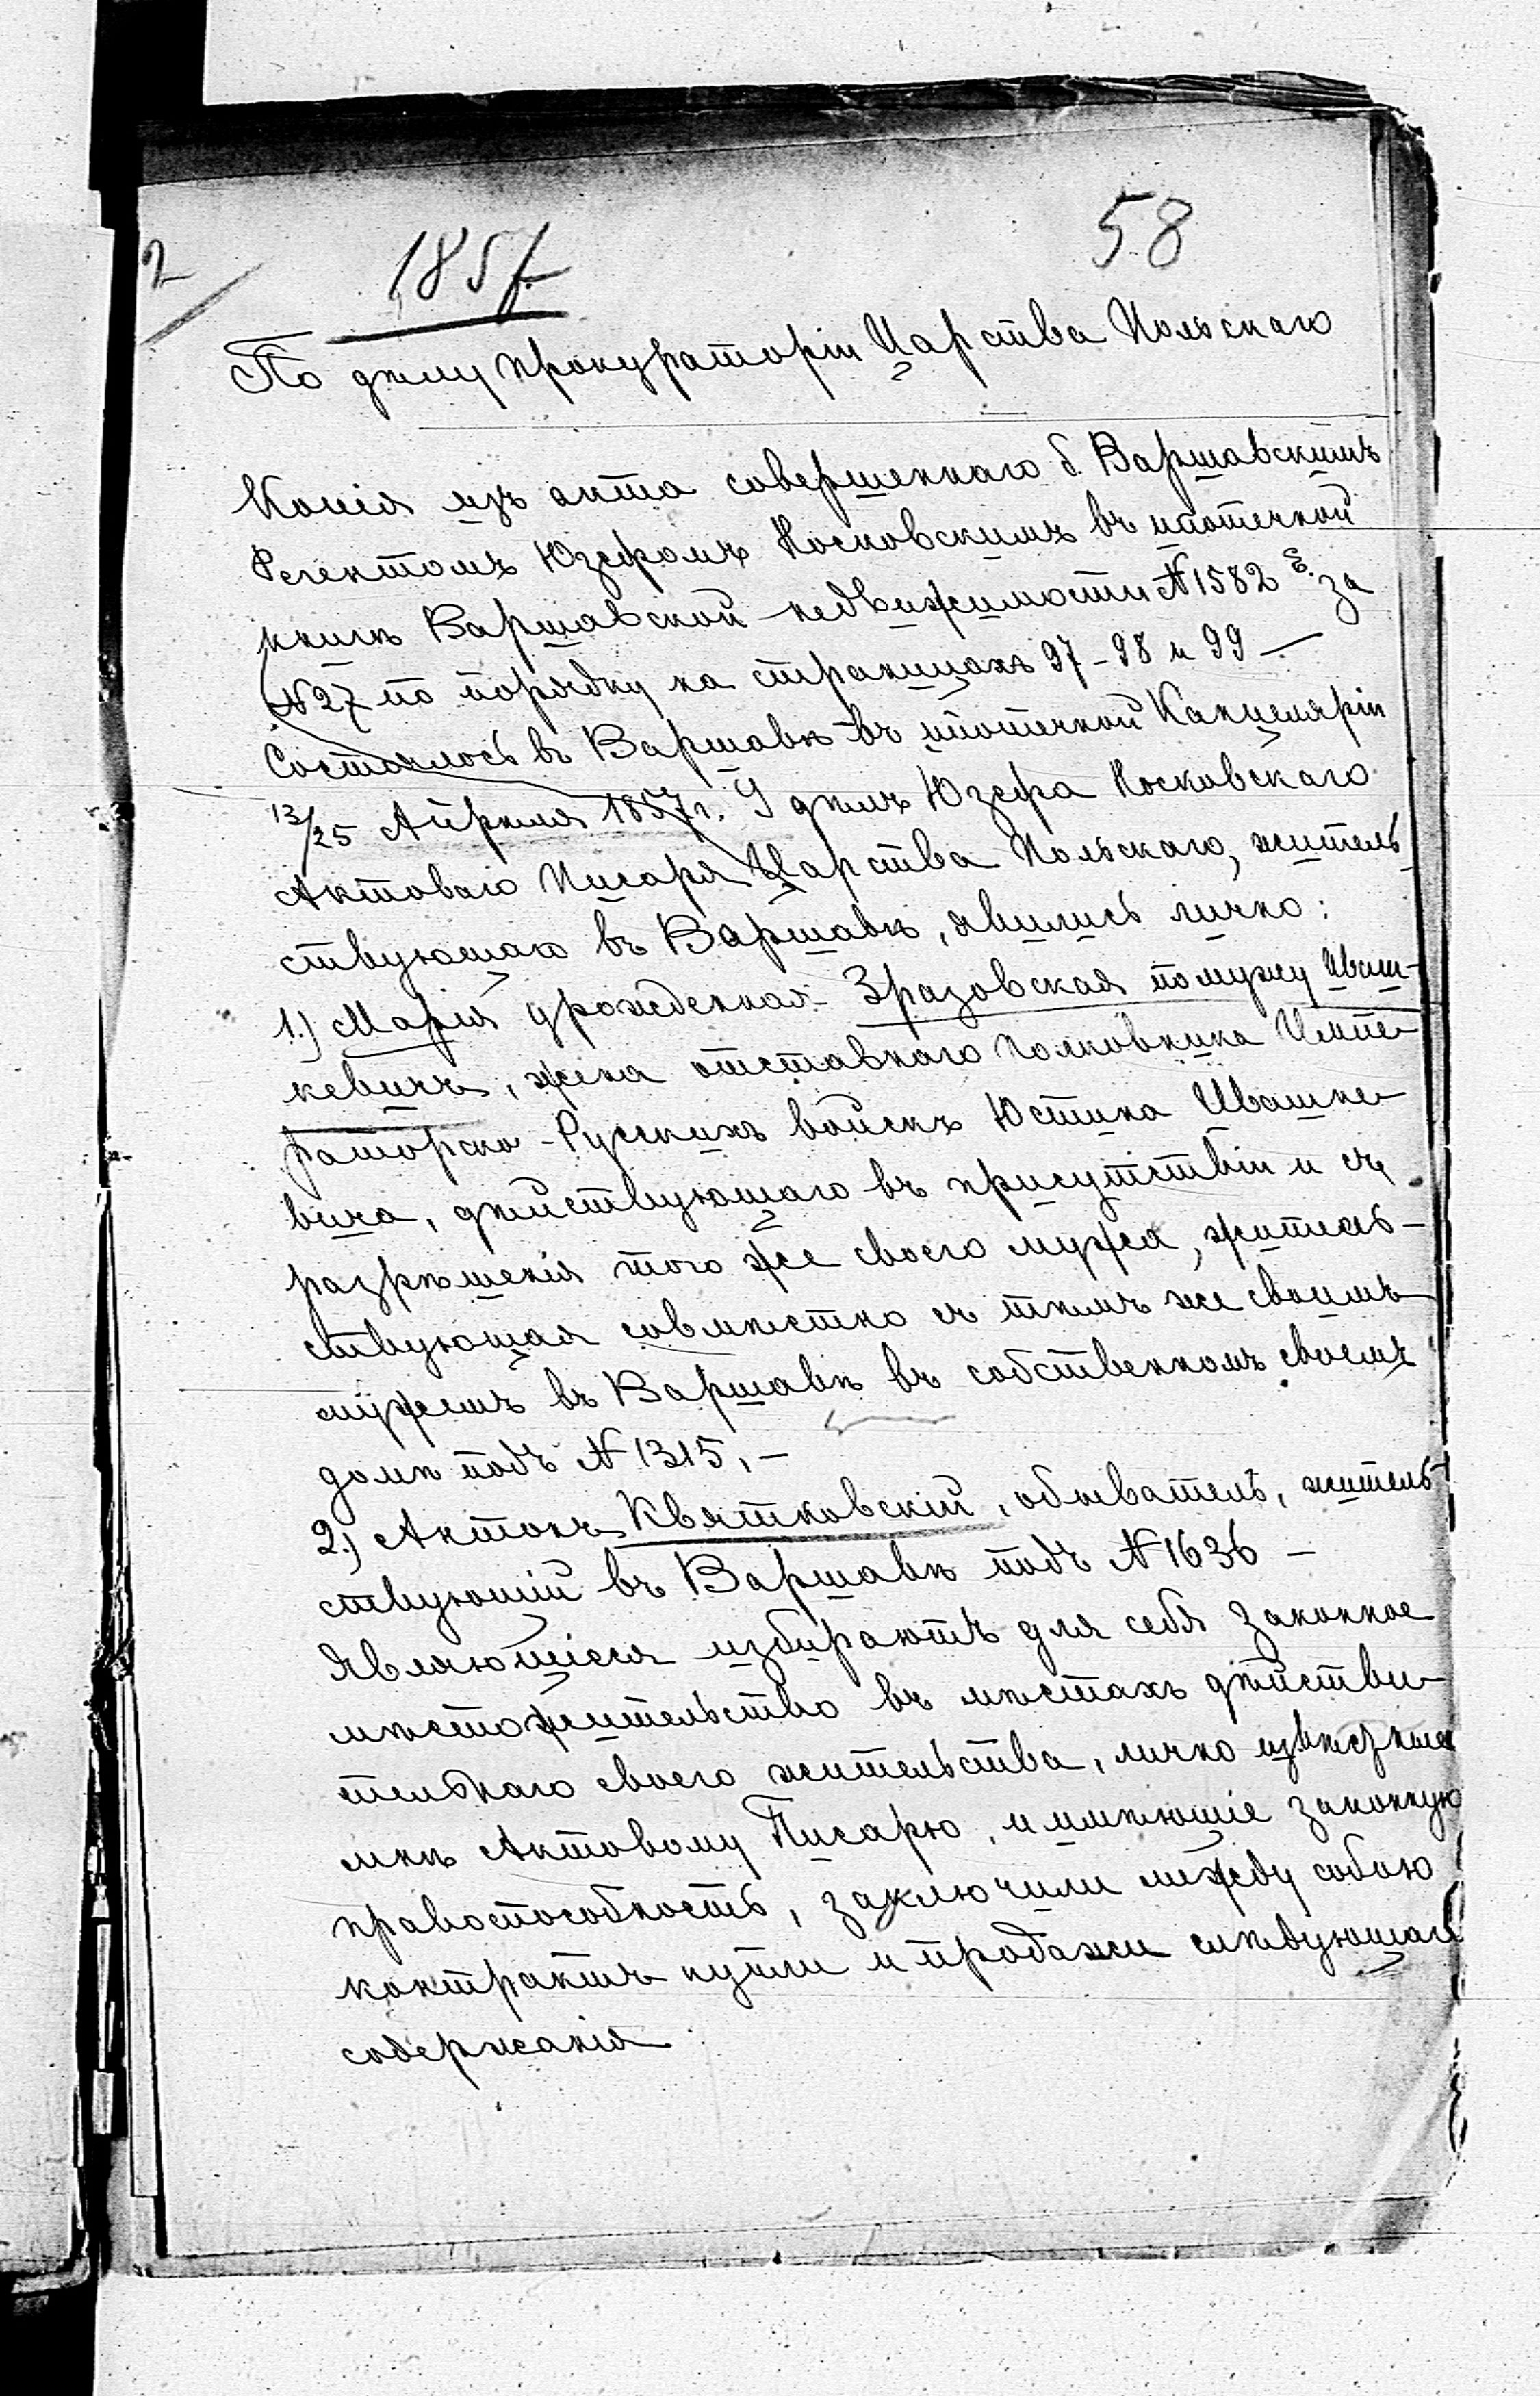 2
1857
58
По дѣлу Прокураторіи Царства Польскаго
Копія изъ акта совершеннаго б. Варшавскимъ
Регентомъ Юзефомъ Носковскимъ въ ипотечной
книгѣ Варшавской недвижимости №1582 за
№27 по порядку на страницахъ 97-98 и 99 —
Состоялось въ Варшавѣ въ ипотечной Канцеляріи
13/25 Апрѣля 1857 г. У дѣлъ Юзефа Носковскаго
Актоваго Писаря Царства Польскаго, житель
ствующаго въ Варшавѣ, явились лично:
1.) Марія урожденная Зразовская по мужу Иваш-
кевичъ, жена отставного Полковника Импе-
раторско-Русскихъ войскъ Юстина Ивашке-
вича, дѣйствующаго въ присутствіи и съ
разрѣшенія того же своего мужа, житель-
ствующая совмѣстно съ тѣмъ же своимъ
мужемъ въ Варшавѣ въ собственномъ своемъ
домѣ подъ №1315, —
2.) Антонъ Квятковскій, обыватель, житель
ствующій въ Варшавѣ подъ №1636 —
Являющіеся избираютъ для себя законное
мѣстожительство въ мѣстахъ дѣйстви-
тельнаго своего жительства, лично извѣстные
мнѣ Актовому Писарю, и имѣющіе законную
правоспособность, заключили между собою
контрактъ купли и продажи слѣдующаго
содержанія